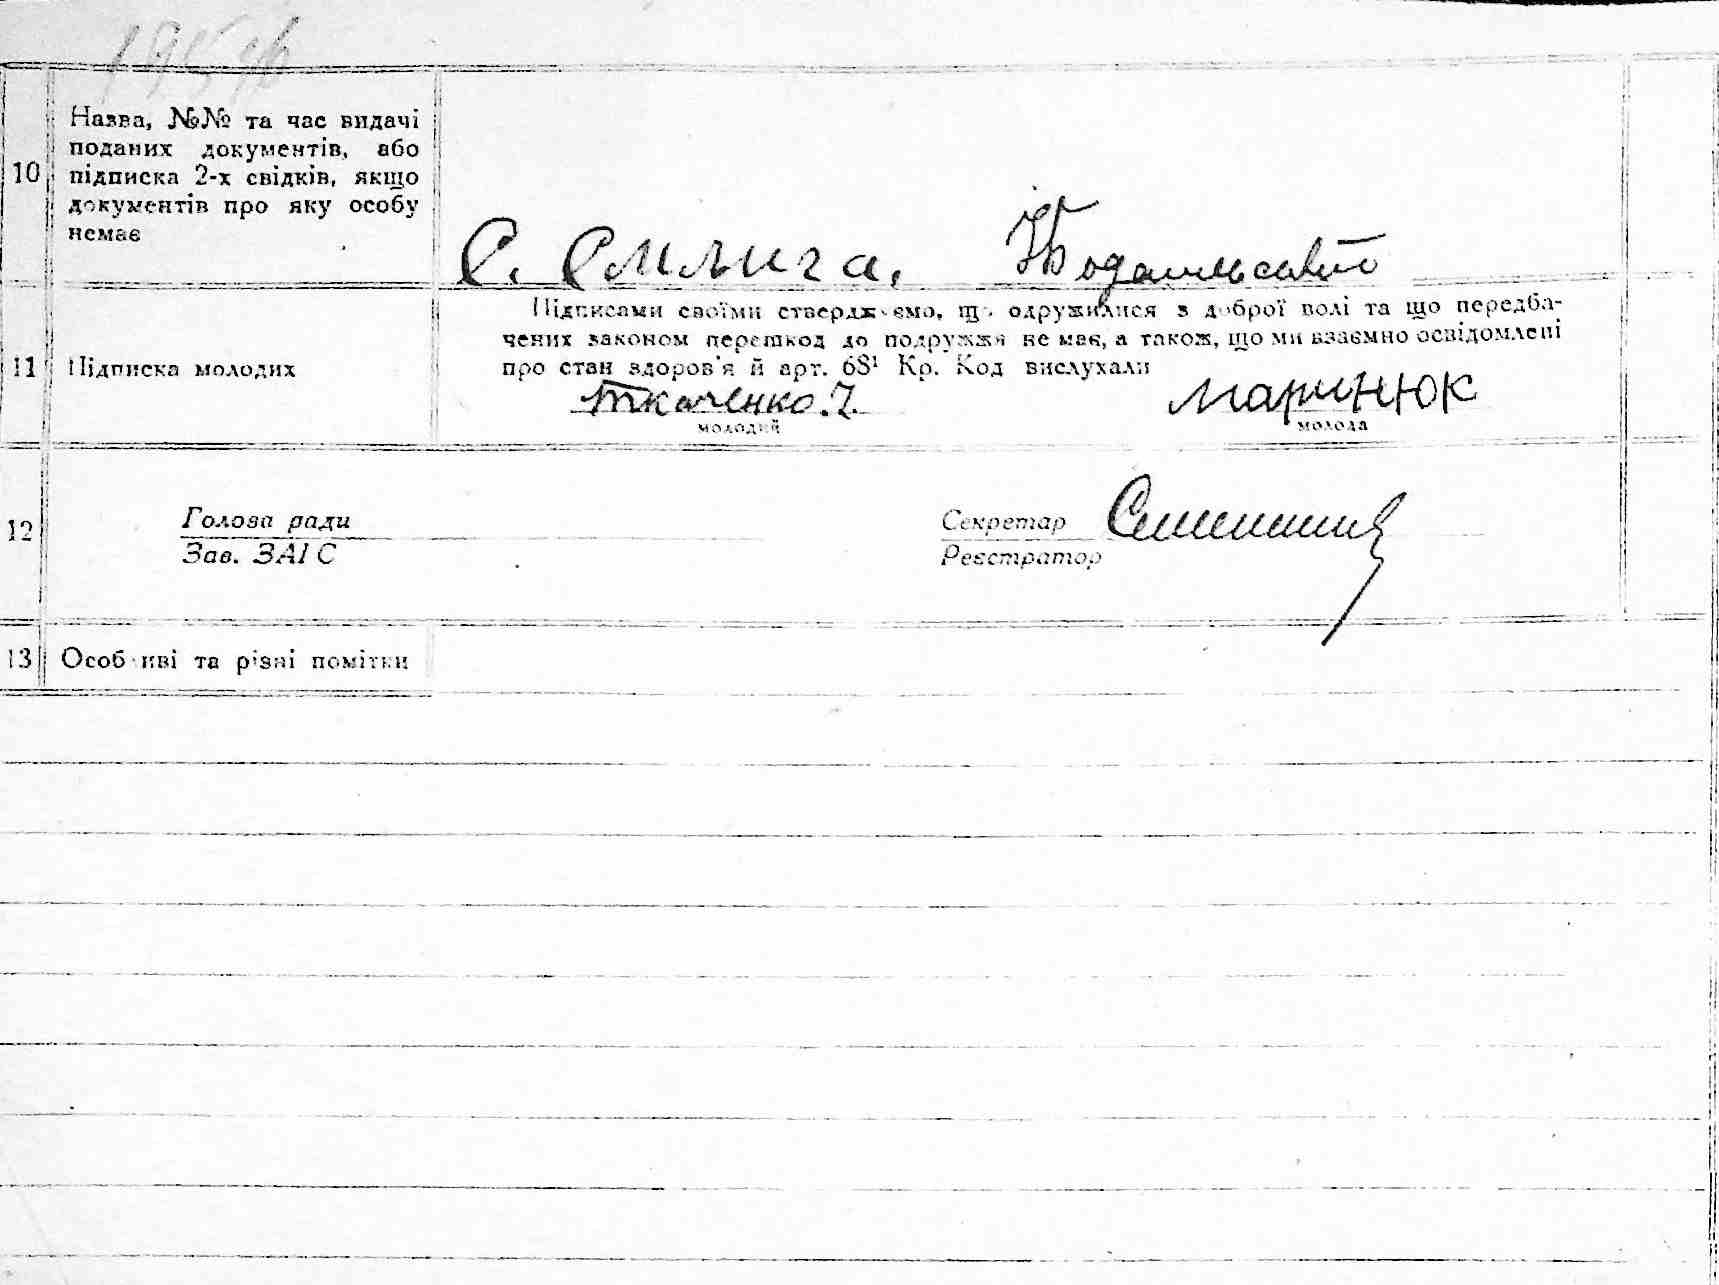 10
Назва, №№ та час видачі
поданих документів, або
підписка 2-х свідків, якщо
документів про яку особу
немає
11
Підписка молодих
Підписами своїми стверджуємо, що одружилися з доброї волі та що передба-
чених законом перешкод до подружжя не має, а також, що ми взаємно освідомлені
про стан здоров'я й арт. 68¹ Кр. Код вислухали
Ткаченко. І.
молодий
маринюк
молода
12
Голова ради
Зав. ЗАГС
Секретар
Реєстратор
13
Особливі та різні помітки